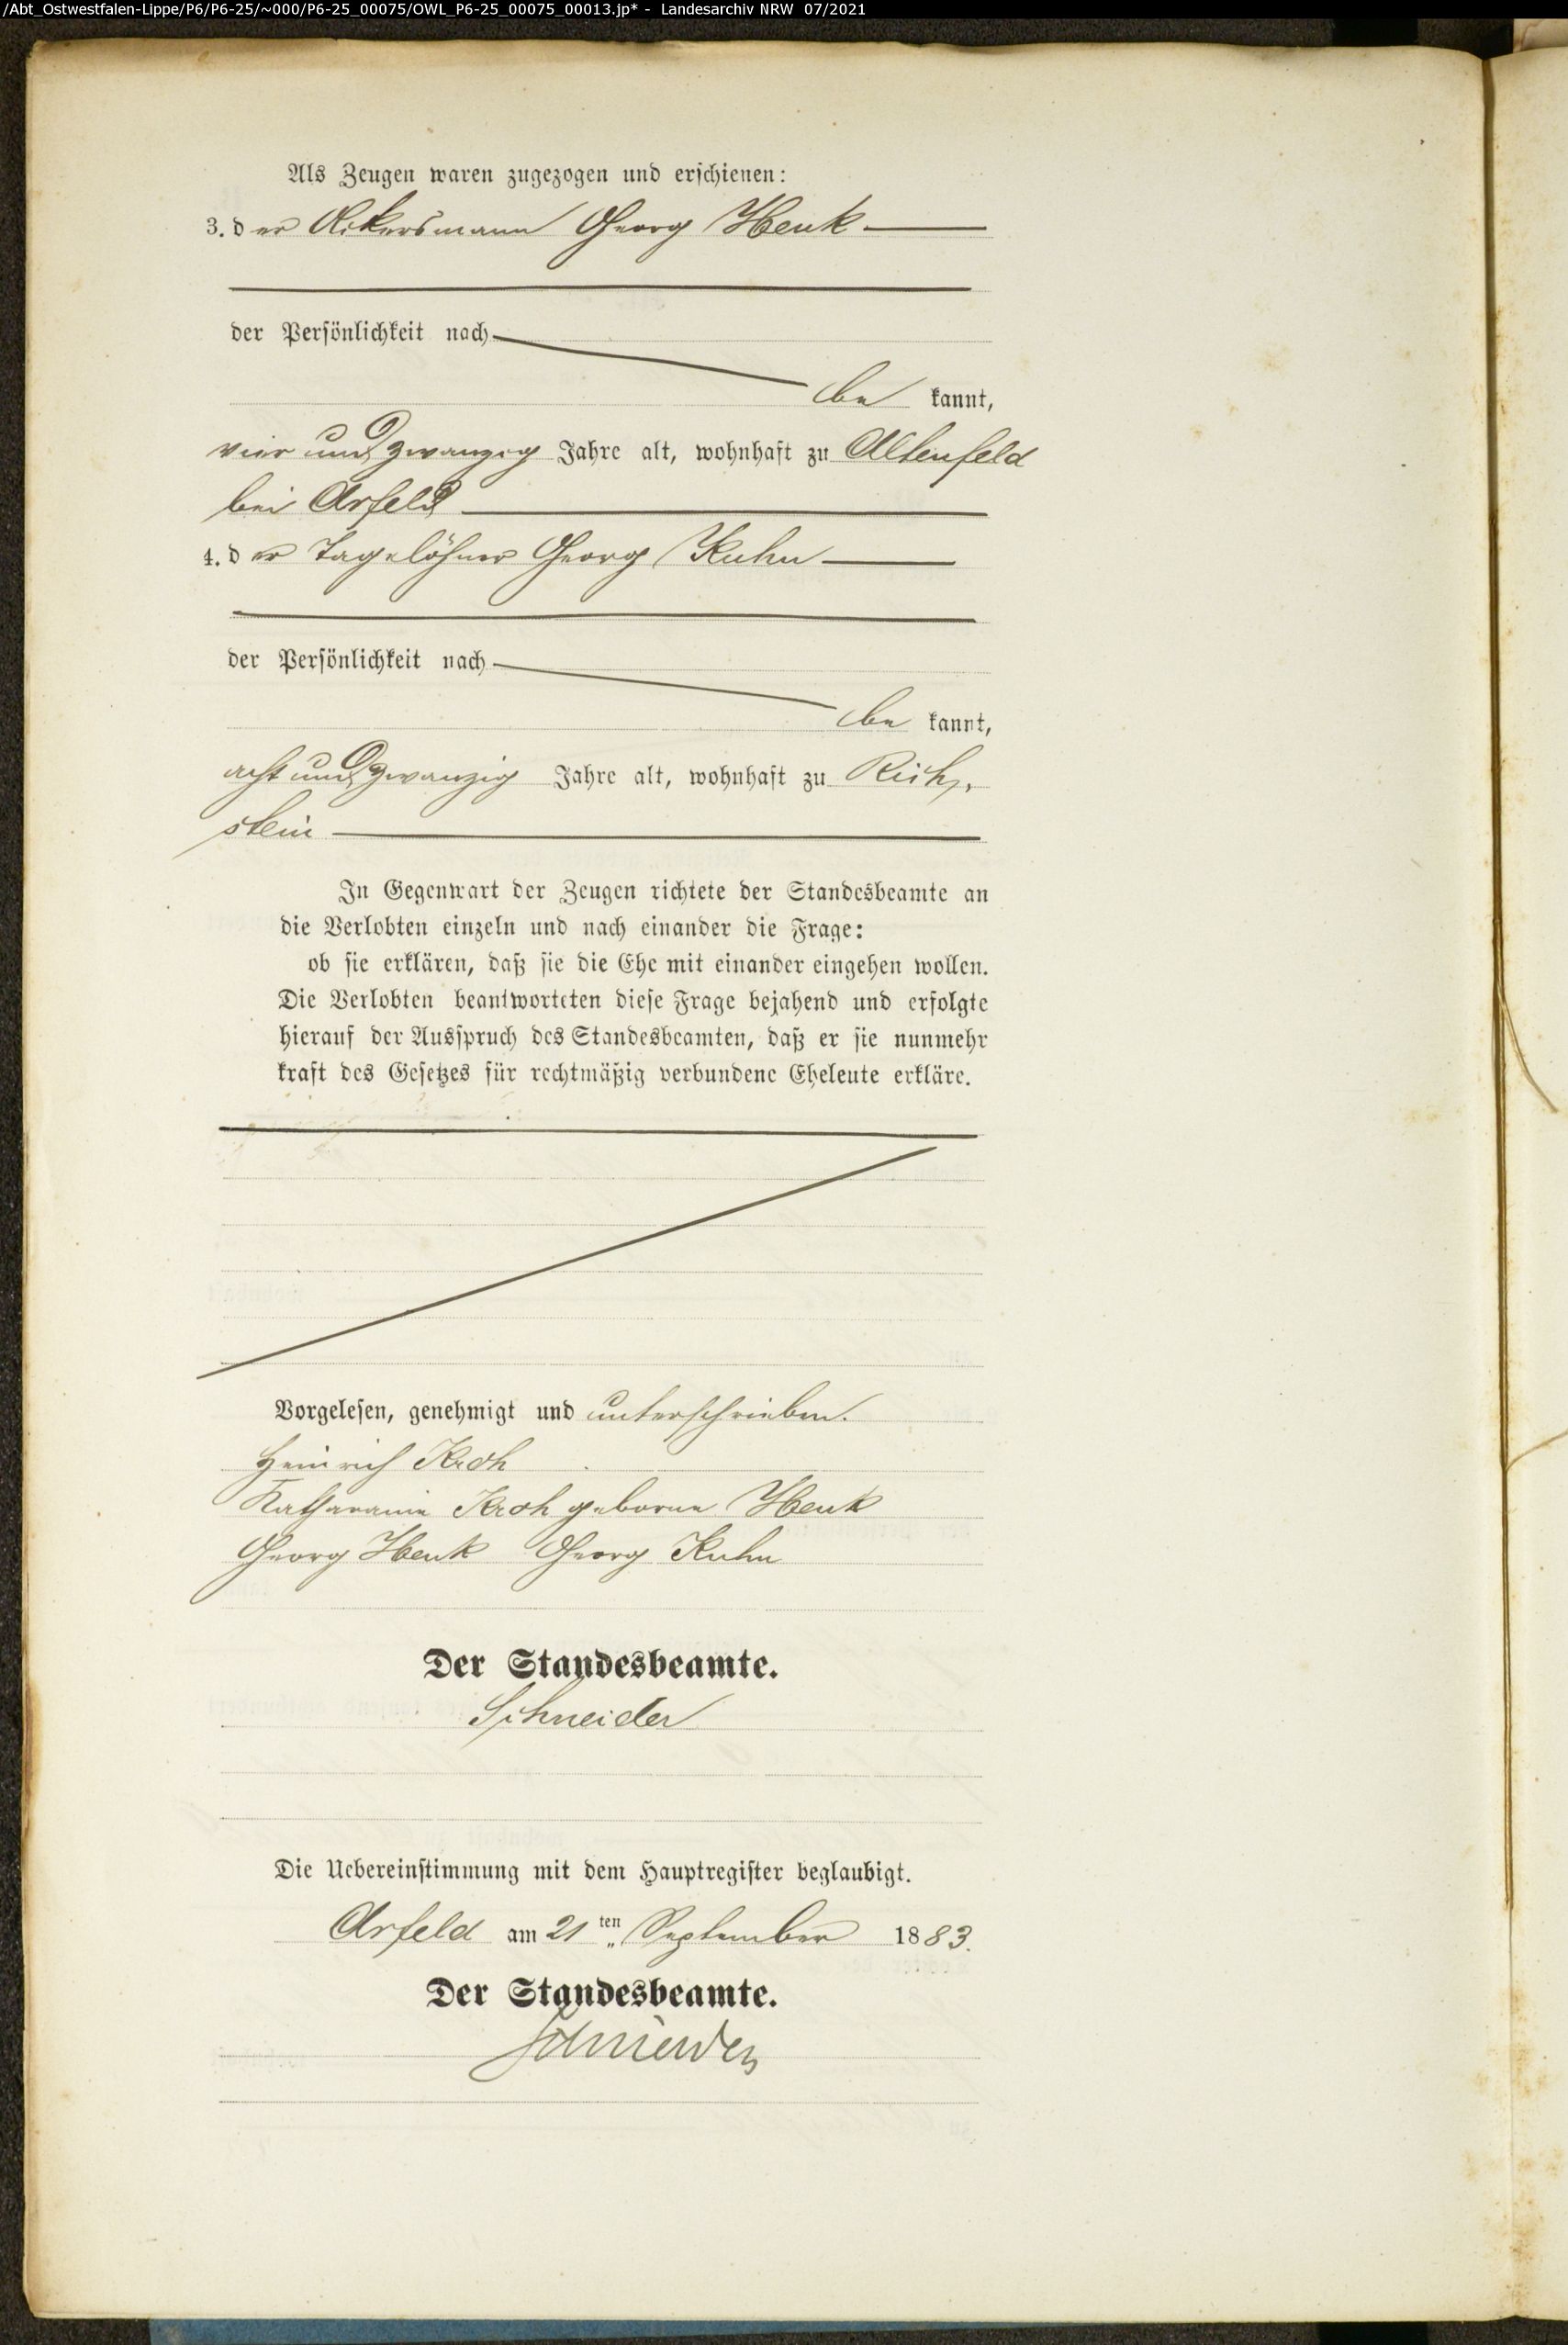 /Abt_Ostwestfalen-Lippe/P6/P6-25/~000/P6-25_00075/OWL_P6-25_00075_00013.jp* - Landesarchiv NRW 07/2021
Als Zeugen waren zugezogen und erschienen:
3. der Ackersmann Georg Henk
der Persönlichkeit nach
be kannt,
vier und zwanzig Jahre alt, wohnhaft zu Altenfeld
bei Arfeld
4. der Tagelöhner Georg Kuhn
der Persönlichkeit nach
be kannt,
acht und zwanzig Jahre alt, wohnhaft zu Richt-
stein
In Gegenwart der Zeugen richtete der Standesbeamte an
die Verlobten einzeln und nach einander die Frage:
ob sie erklären, daß sie die Ehe mit einander eingehen wollen.
Die Verlobten beantworteten diese Frage bejahend und erfolgte
hierauf der Ausspruch des Standesbeamten, daß er sie nunmehr
kraft des Gesetzes für rechtmäßig verbundene Eheleute erkläre.
Vorgelesen, genehmigt und unterschrieben.
Heinrich Kroh
Katharanie Kroh geborne Henk
Georg Henk Georg Kuhn
Der Standesbeamte.
Schneider
Die Uebereinstimmung mit dem Hauptregister beglaubigt.
Arfeld am 21ten September 1883.
Der Standesbeamte.
Schneider